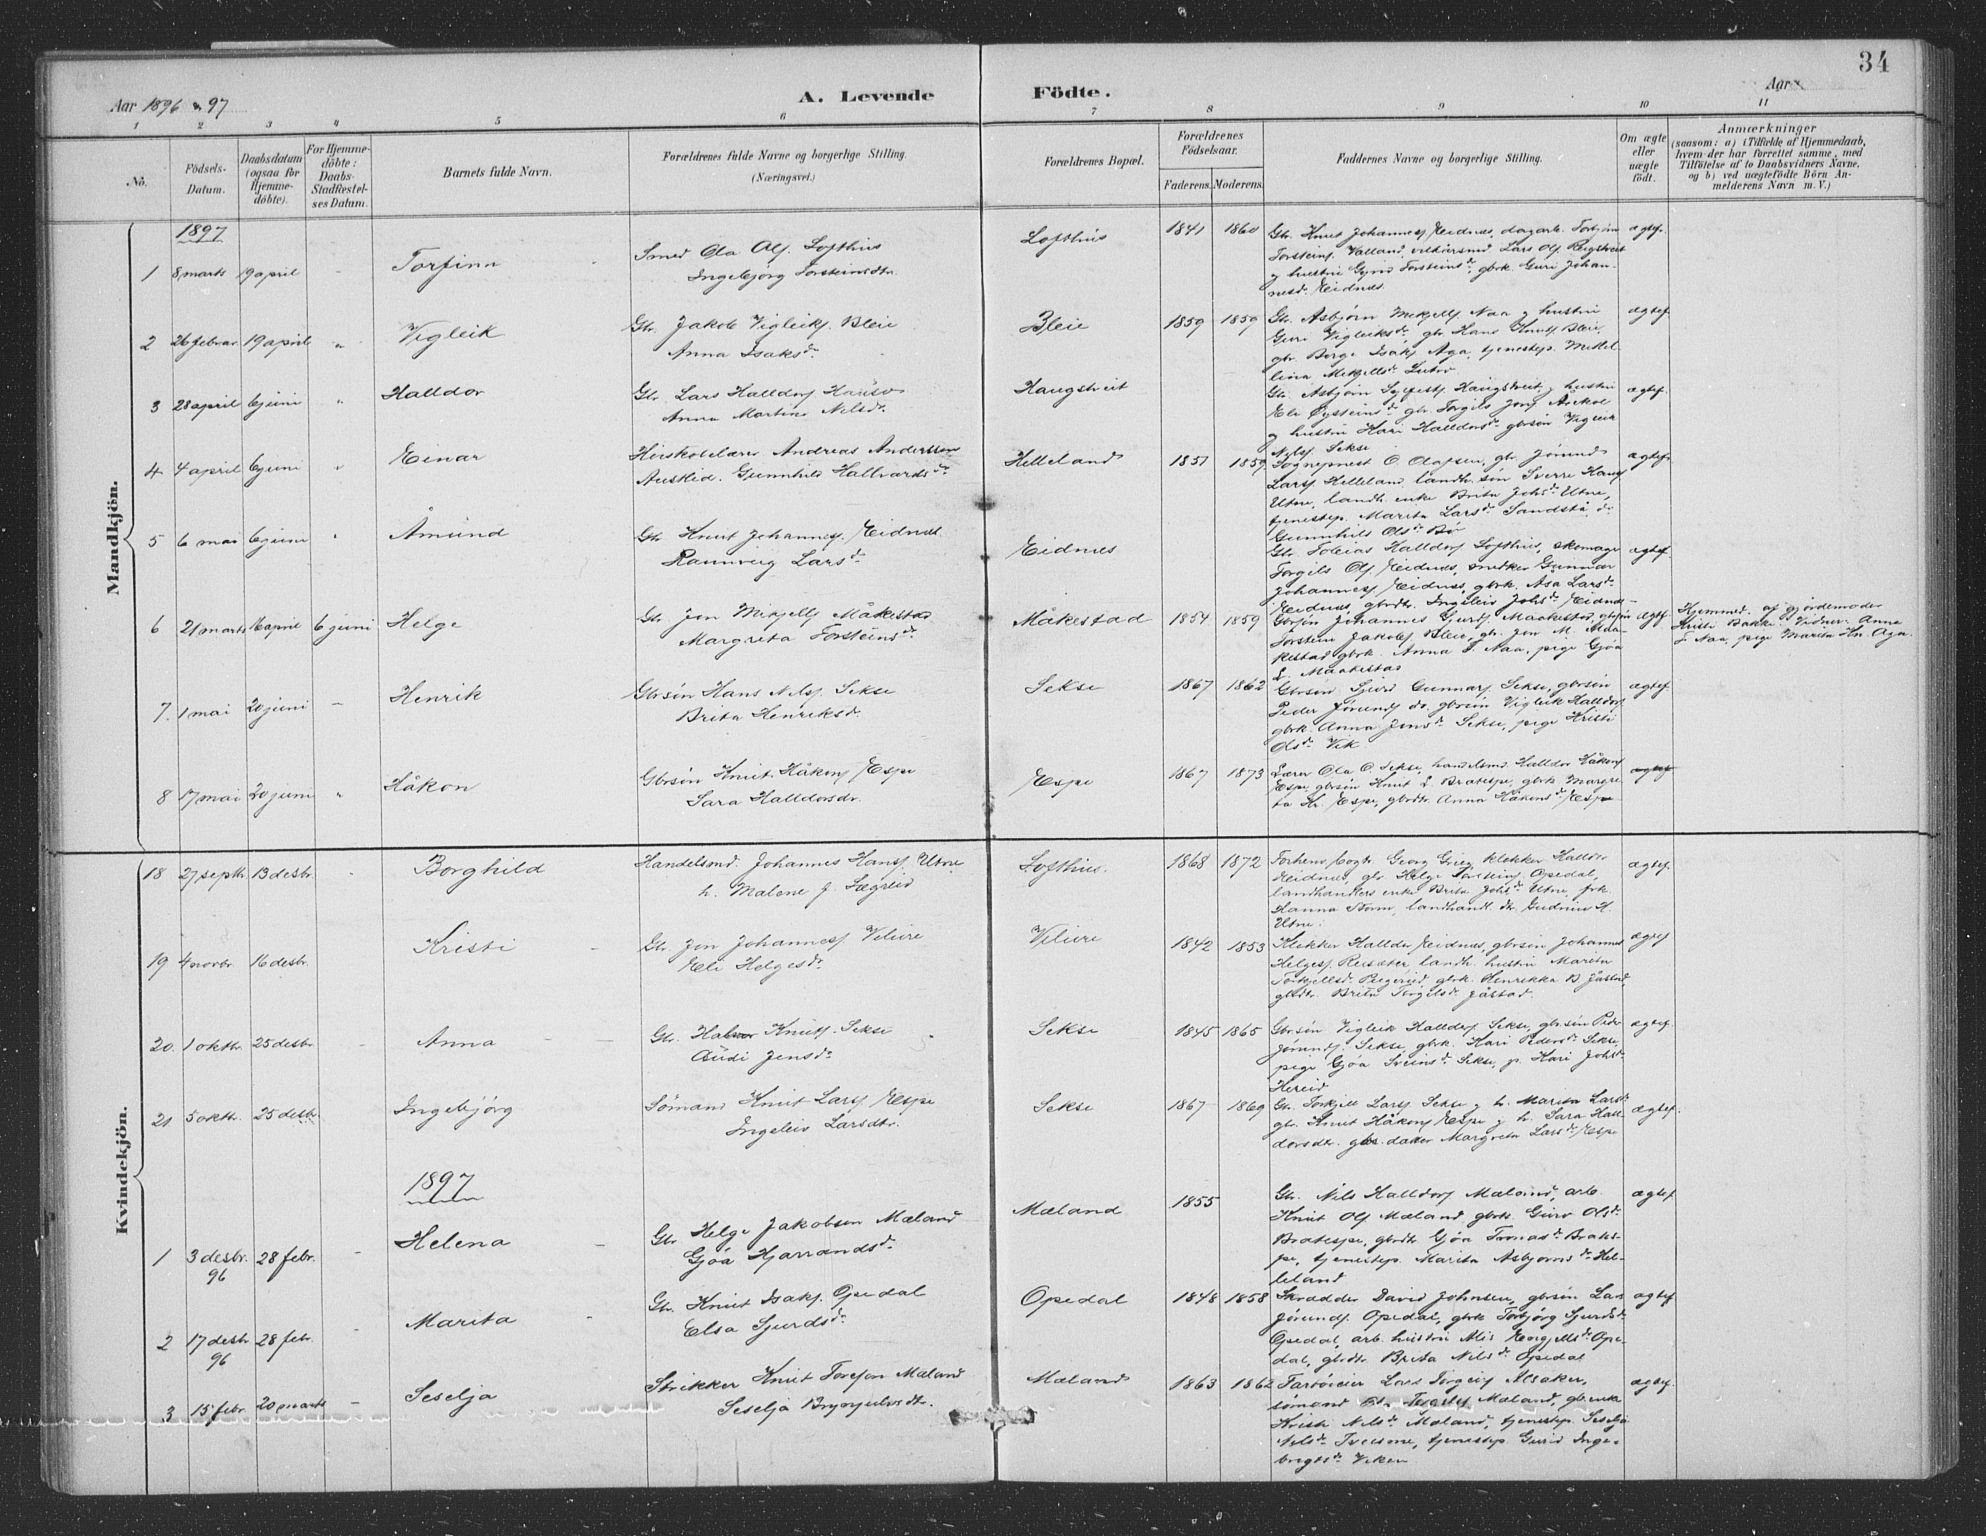 34
Aar 1896 & 97
A. Levende Födte.
Aar
1 2 3 4 5 6 7 8 9 10 11
No.
Födsels-Datum.
Daabsdatum (ogsaa for Hjemme-döbte).
For Hjemme-döbte: Daabs-Stadfestel-ses Datum.
Barnets fulde Navn.
Forældrenes fulde Navne og borgerlige Stilling. (Næringsvei.)
Forældrenes Bopæl.
Forældrenes Födselsaar.
Faderens. Moderens.
Faddernes Navne og borgerlige Stilling.
Om ægte eller uægte födt.
Anmærkninger
(saasom: a) i Tilfælde af Hjemmedaab, hvem der har forrettet samme, med Tilföielse af to Daabsvidners Navne, og b) ved uægtefödte Börn An-melderens Navn m. V.)
Mandkjön.
1897
1 8 marts 19 april - Torfinn
Smed Ola Olss. Lofthus
Ingebjörg Torsteinsdtr.
Lofthus 1841 1860
Gbr. Knut Johanness. Eidnes, dagarb. Torbjörn
Torsteins. Valland, Lars Ols.
og hustru Torsteinsdr, gbrk. Guri Johan-
nesdr. Eidnes
ægtef.
2 26 februar 19 april " Vigleik
Gbr. Jakob Vigleiks. Bleie
Anna Isaksdr.
Bleie 1859 1859
Gbr. Asbjörn Mikjells. Naa og hustru
Guri Vigleiksdr, gbr. Hans Knuts. Bleie,
gbr. Börge Isaks. Aga, tjenestep.
lina Mikjellsdr.
ægtef
3 28 april 6 juni " Halldor
Gbr. Lars Halldors. Hauso
Anna Martine Nilsdr.
Haugstveit
Gbr. Asbjörn Haugstveit og hustru
Eli Öysteinsdr. gbr. Torgils Jons.
og hustru Kari Halldorsdr. gbrsön Vigleik
Nils. Sekse
ægtef.
4 4 april 6 juni " Einar
Andreas Anderssen
Austlid. Gunnhild Hallvardsdr.
Helleland 1851 1859
Sogneprest O. Olafsen, gbr. Jörund
Lars. Helleland, landh. sön Sverre Hans.
Utne, landh. enke Brita Johsdr. Utne,
tjenestep. Marita Larsdr. Sandstå, do
Gunnhild Olsdr. Bö
ægtef.
5 6 mai 6 juni " Åmund
Gbr. Knut Johanness. Eidnes
Rannveig Larsdr.
Eidnes
Gbr. Tobias Halldors. Lofthus, skomager
Torgils Ols. Eidnes, snedker Gunnar
Johanness. Eidnes, gbrk. Åsa Larsdr.
Eidnes, gbrdtr. Ingeleiv Johsdr. Eidnes
ægtef.
6 21 marts 16 april 6 juni Helge
Gbr. Jon Mikjells. Måkestad
Margreta Torsteinsdr.
Måkestad 1854 1859
Gbrsön Johannes Gurds. Maakestad, gbrsön
Torstein Jakobs. Bleie, gbr. Jon M. Maa-
kestad gbrk. Anna T. Naa, pige Gjöa
L. Maakestad
ægtef
Hjemmed. af gjordemoder
Kristi Bakke. Vidner: Anna
T. Naa, pige Marita Kn. Aga.
7. 1 mai 20 juni - Henrik
Gbrsön Hans Nils. Sekse
Brita Henriksdr.
Sekse 1867 1862
Gbrsön Sjurd Gunnars. Sekse, gbrsön
Peder Jörunds. do. gbrsön Vigleik Halldors.
gbrk. Anna Jensdr. Sekse, pige Kristi
Olsdr. Vik
ægtef.
8 17 mai 20 juni " Håkon
Gbrsön Knut Håkons. Espe
Sara Halldorsdr.
Espe 1867 1873
Lærer Ola O. Sekse, handelsmd. Halldor Håkons.
Espe, gbrsön Knut L. Bratespe, gbrk. Margre-
ta Kr. Espe, gbrdtr. Anna Håkonsdr. Espe
ægtef
Kvindekjön.
18 27 septbr. 13 desbr. - Borghild
Handelsmd. Johannes Hans. Utne
h. Malene f. Legreid
Lofthus. 1868 1872
Georg Grieg, klokker Halldor
Eidnes, gbr. Helge Torsteins. Opedal,
landhandlers enke Brita Johsdr. Utne, frk.
Hanna Storm, landhandl. dtr. Gudrun H.
Utne.
ægtef.
19 4 novbr. 16 desbr. Kristi
Gbr. Jon Johanness. Velure
Eli Helgesdr.
Velure 1842 1853
Klokker Halldor Eidnes, gbrsön Johannes
Helges. Reisæter, landh. hustru Marita
Torkjellsdr. gbrk. Henrikka B. Jåstad
gbrdtr. Brita Torgilsdr. Jåstad.
ægtef
20. 1 oktbr. 25 desbr Anna
Gbr. Knuts. Sekse
Gudi Jensdr
Sekse 1845 1865
Gbrsön Vigleik Halldors. Sekse, gbrsön Peder
Jörunds. Sekse, gbrk. Kari Pedersdr. Sekse,
pige Gjöa Sveinsdr. Sekse, p. Kari Johsdr
Hereid
ægtef.
21 5 oktr. 25 desbr. Ingebjörg
Sömand Knut Lars. Espe
Ingeleiv Larsdtr.
Sekse 1867 1869
Gbr. Torkjell Lars. Sekse og h. Marita Larsdr
gbr. Knut Håkons. Espe og h. Sara Hall-
dorsdr. gbr. datter Margreta Larsdr. Espe
ægtef.
1897
1 3 desbr. 96 28 febr. - Helena
Gbr. Helge Jakobsen Mæland
Gjöa Hjarrandsdr.
Mæland 1855
Gbr. Nils Halldors. Mæland, arb.
Knut Ols. Mæland gbrk. Guro Olsdr.
Bratespe, gbrdtr Gjöa Tronasdr. Brates-
pe, tjenestep. Marita Asbjörnsdr. Hel-
leland
ægtef
2 17 desbr 96 28 febr. - Marita
Gbr. Knut Isaks. Opedal
Elsa Sjurdsdr.
Opedal 1848 1858
Skrædder David Johnsen, gbrsön Lars
Jörunds. Opedal, gbrk Torbjörg Sjurdsdr
Opedal, arb. hustru Alis Ope-
dal, gbrdtr. Brita Nilsdr. Opedal
ægtef
3 15 febr. 20 marts - Seselja
Strikker Knut Toresen Mæland
Seselja Brynjulvsdtr.
Mæland 1863 1862
Lars Torgeirs. Alsaker,
sömand Mæland, gbrenke
Kristi Nilsdr. Mæland, tjenestep. Seselja
Nilsdr. tjenestep. Gurid Inge-
brigtsdr. Viken
ægtef.